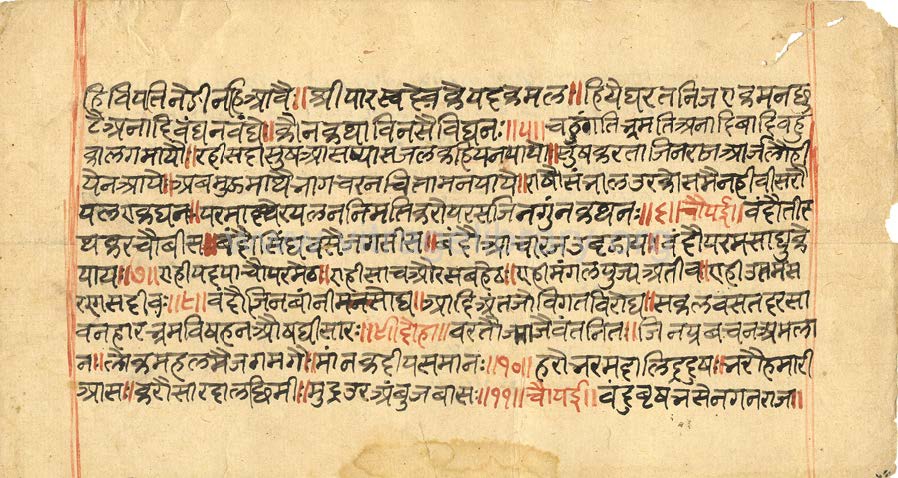 हि विपति नेडी नहि आवै॥ श्रीपारस्वदेव के पद कमल॥ हिये धरत निज एक मन छु
टै अनादि बंधन बंधे॥ कौन कथा विनसै विघनः॥५॥ चहुंगति भ्रमति अनादि बादि बहुं
काल गमायौ॥ रही सदां सुष आस प्यास जल कहिय न पायौ॥ सुष करता जिनराज आजलौ ही
ये न आयै॥ अब मुझ माथै भाग चरन चिंतामन पायै॥ राषौ संभाल उर कोस मै नही वीसरौ
पल एक घन॥ परमाद चोर पलन निमति करो पारस जिन गुंन कथनः॥६॥ चौपई॥ वंदौ तीर
थंकर चौबीस॥ वंदौ सिध वसै जग सीस॥ वंदौ आचारज उवझाय॥ वंदौ परम साधु के
पाय॥७॥ एही पद पांचौ परमेठ॥ एही साच और सब हेठ॥ एही मंगल पुज्य अतीव॥ एही उतम सर
ण सदीवः॥८॥ वंदौ जिनबांनी मन सोध॥ आदि अंत जो विगत विरोध॥ सकल वसत दरसा
वनहार भ्रम विष हन औषधी सारः॥९॥ दोहा॥ वरतो जग जैवंत नितः॥ जिन प्रवचन अमला
न॥ लोक महल मै जगमगै॥ मानक दीप समानः॥१०॥ हरौ भरम दालिद्र दुषः॥ भरौ हमारी
आसः॥ करौ सारदा लछिमी॥ मुद्र उर अंबुज बासः॥११॥ चौपई॥ वंदु वृषभसेन गनराज॥